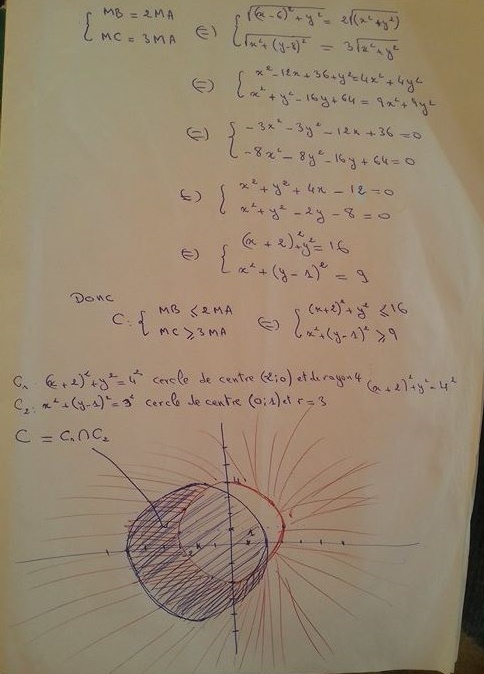 { MB = 2MA ⇔ { √((x-6)²+y²) = 2√(x²+y²)
{ MC = 3MA { √(x²+(y-8)²) = 3√(x²+y²)
⇔ { x²-12x+36+y²=4x²+4y²
{ x²+y²-16y+64 = 9x²+9y²
⇔ { -3x²-3y²-12x+36=0
{ -8x²-8y²-16y+64=0
⇔ { x²+y²+4x-12=0
{ x²+y²-2y-8=0
⇔ { (x+2)²+y²=16
{ x²+(y-1)²=9
Donc
C: { MB ≤ 2MA ⇔ { (x+2)²+y² ≤ 16
{ MC ≥ 3MA { x²+(y-1)² ≥ 9
C₁: (x+2)²+y²=4² cercle de centre (2;0) et de rayon 4 (x+2)²+y²=4²
C₂: x²+(y-1)²=3² cercle de centre (0;1) et r=3
C = C₁∩C₂